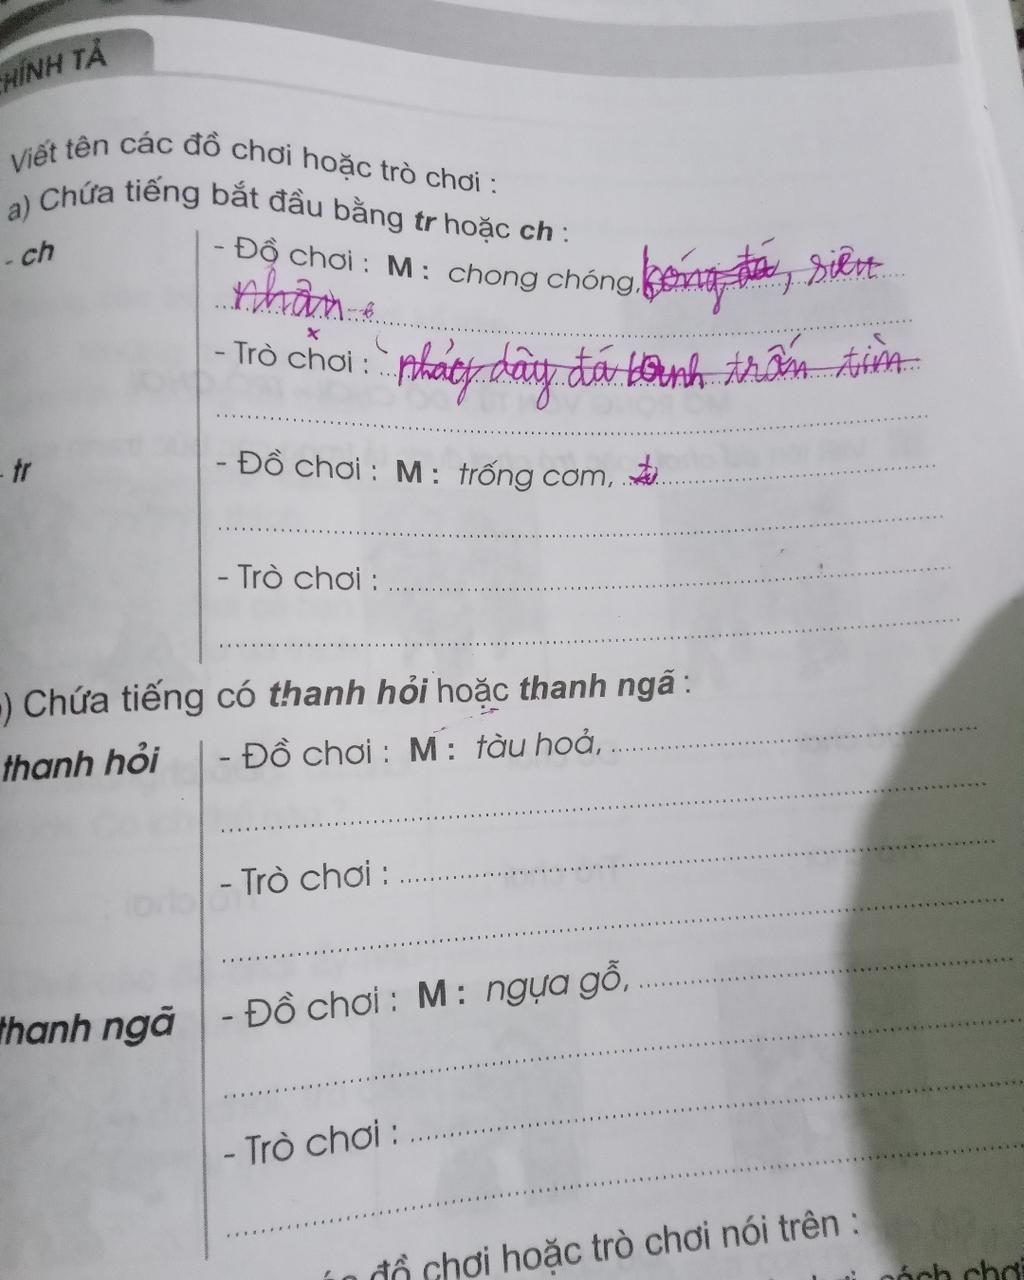 CHÍNH TẢ
Viết tên các đồ chơi hoặc trò chơi :
a) Chứa tiếng bắt đầu bằng tr hoặc ch :
- ch
- Đồ chơi : M : chong chóng, bóng đá, siêu
nhân
x
- Trò chơi : nhảy dây đá banh trốn tìm
- tr
- Đồ chơi : M : trống cơm,
- Trò chơi :
) Chứa tiếng có thanh hỏi hoặc thanh ngã :
thanh hỏi
- Đồ chơi : M : tàu hoả,
- Trò chơi :
thanh ngã
- Đồ chơi : M : ngựa gỗ,
- Trò chơi :
đồ chơi hoặc trò chơi nói trên :
cách chơi